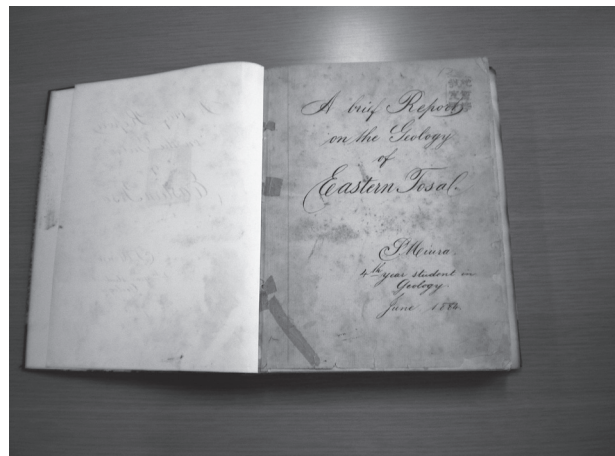 A brief Report
on the Geology
of
Eastern Tosa.
S. Miura.
4th year student in
Geology.
June 1884.